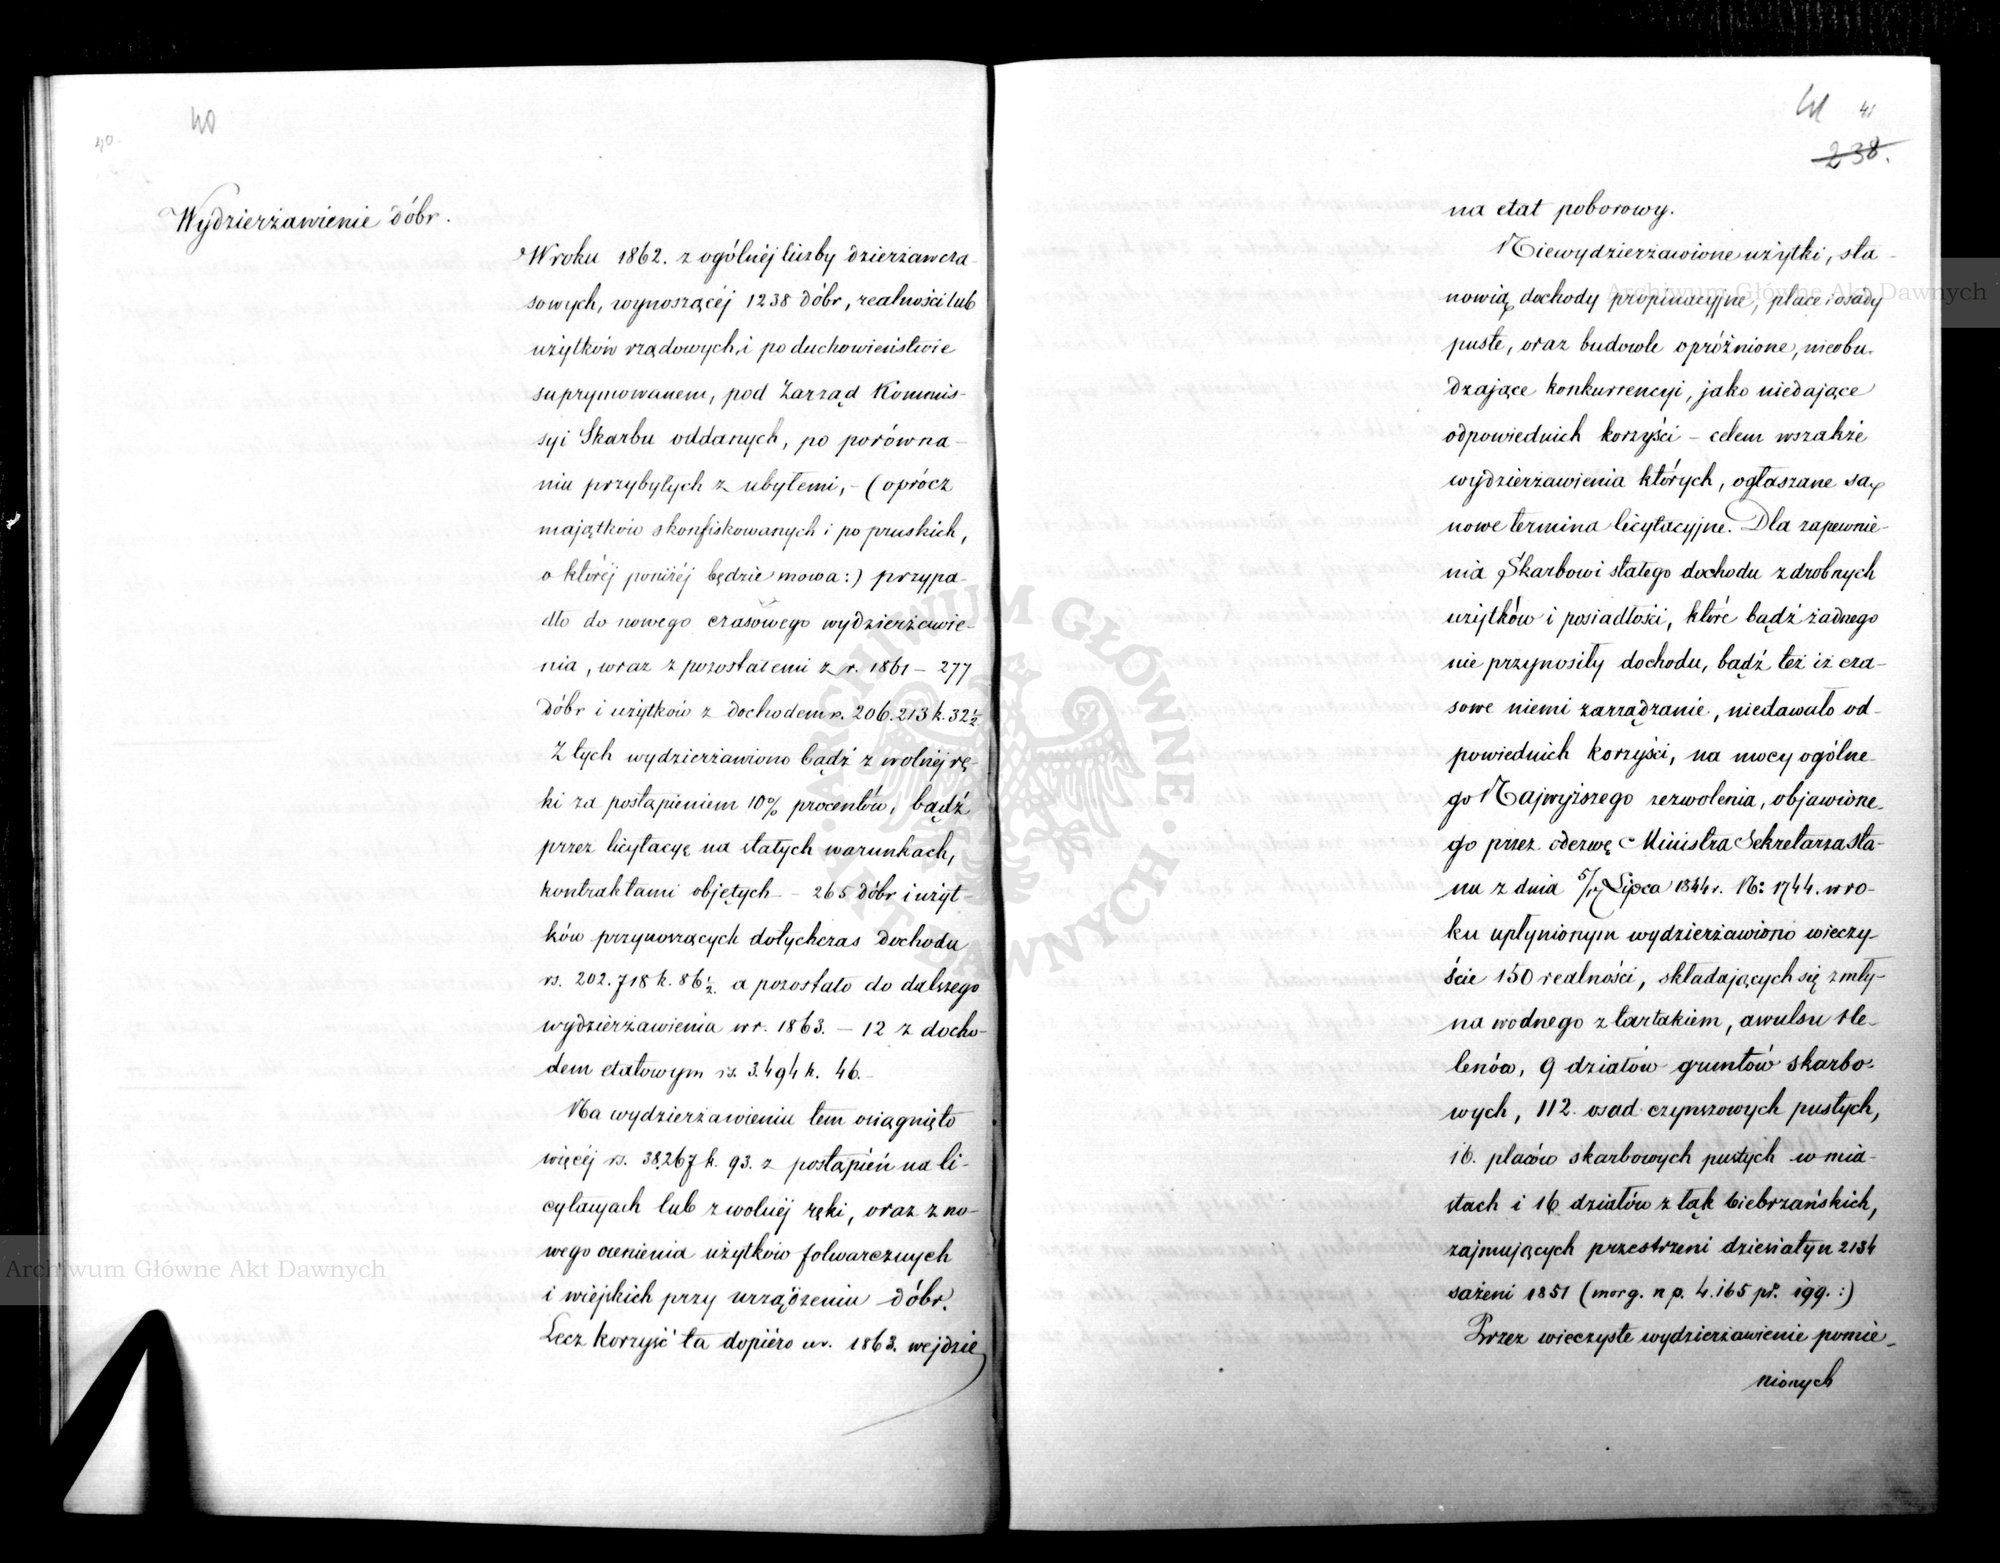 40
40.
Wydzierżawienie dóbr.
W roku 1862. z ogólnéj liczby dzierżaw cza-
sowych, wynoszącéj 1238 dóbr, realności lub
użytków rządowych i po duchowieństwie
suprymowanem, pod Zarząd Kommis-
syi Skarbu oddanych, po porówna-
niu przybyłych z ubyłemi, - (oprócz
majątków skonfiskowanych i po pruskich,
o któréj poniżéj będzie mowa:) przypa-
dło do nowego czasowego wydzierżawie-
nia, wraz z pozostałemi z r. 1861 - 277
dóbr i użytków z dochodem rs. 206.213 k. 32½
Z tych wydzierżawiono bądź z wolnéj rę-
ki za postąpieniem 10% procentów, bądź
przez licytacyę na stałych warunkach,
kontraktami objętych - 265 dóbr i użyt-
ków przynoszących dotychczas dochodu
rs. 202.718 k. 86½. a pozostało do dalszego
wydzierżawienia w r. 1863. - 12 z docho-
dem etatowym rs. 3.494 k. 46.-
Na wydzierżawieniu tem osiągnięto
więcéj rs. 38,267 k. 93. z postąpień na li-
cytacyach lub z wolnéj ręki, oraz z no-
wego ocenienia użytków folwarcznych
i wiejskich przy urządzeniu dóbr.
Lecz korzyść ta dopiéro w r. 1863. wejdzie
41 41
238.
na etat poborowy.
Niewydzierżawione użytki, sta-
nowią dochody propinacyjne, place i osady
puste, oraz budowle opróżnione, nieobu-
dzające konkurrencyi, jako niedające
odpowiednich korzyści - celem wszakże
wydzierżawienia których, ogłaszane są
nowe termina licytacyjne. Dla zapewnie-
nia Skarbowi stałego dochodu z drobnych
użytków i posiadłości, które bądź żadnego
nie przynosiły dochodu, bądź też iż cza-
sowe niemi zarządzanie, niedawało od-
powiednich korzyści, na mocy ogólne-
go Najwyższego zezwolenia, objawione-
go przez odezwę Ministra Sekretarza Sta-
nu z dnia 5/17 Lipca 1844 r. No: 1744. w ro-
ku upłynionym wydzierżawiono wieczy-
ście 150 realności, składających się z mły-
na wodnego z tartakiem, awulsu Ste-
lenów, 9 działów gruntów skarbo-
wych, 112. osad czynszowych pustych,
16. placów skarbowych pustych w mia-
stach i 16 działów z łąk biebrzańskich,
zajmujących przestrzeni dziesiatyn 2134
sażeni 1851 (morg. n p. 4.165 pr. 199.:)
Przez wieczyste wydzierżawienie pomie-
nionych
Archiwum Główne Akt Dawnych
Archiwum Główne Akt Dawnych
ARCHIWUM GŁÓWNE AKT DAWNYCH